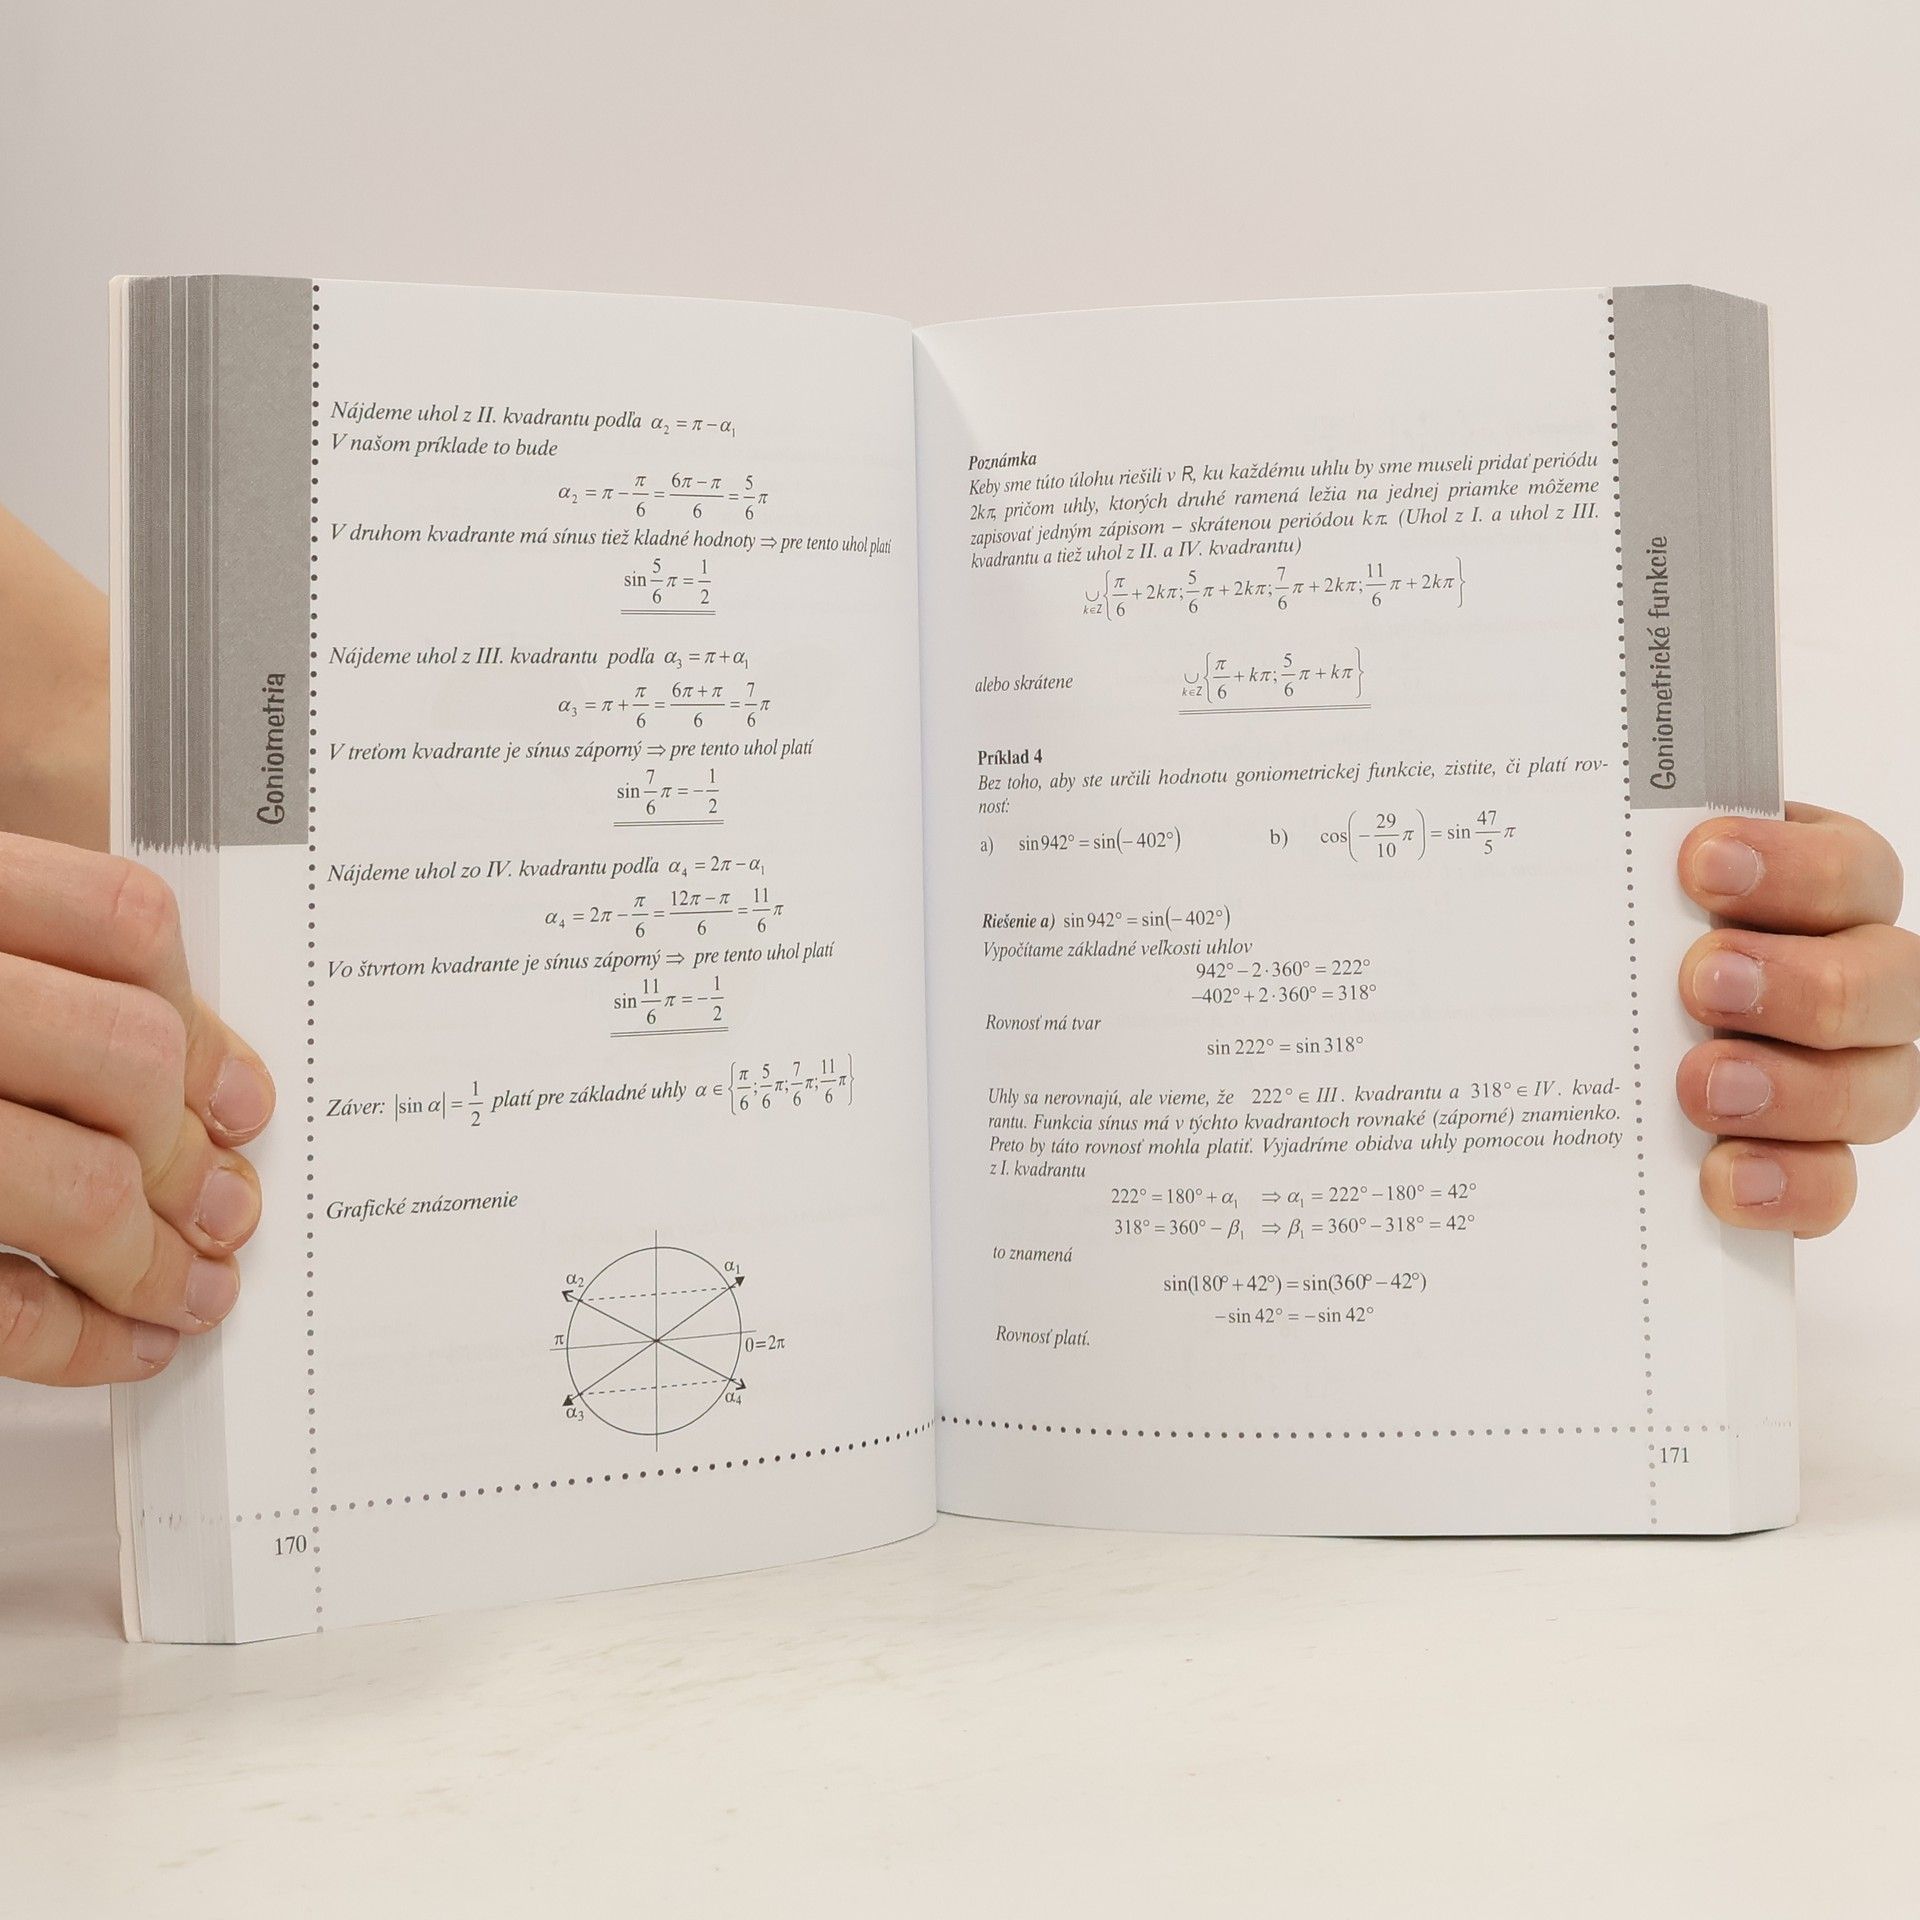 Goniometria
Nájdeme uhol z II. kvadrantu podľa α₂ = π – α₁
V našom príklade to bude
α₂ = π – π/6 = (6π – π)/6 = 5/6 π
V druhom kvadrante má sínus tiež kladné hodnoty ⇒ pre tento uhol platí
sin 5/6 π = 1/2
Nájdeme uhol z III. kvadrantu podľa α₃ = π + α₁
α₃ = π + π/6 = (6π + π)/6 = 7/6 π
V treťom kvadrante je sínus záporný ⇒ pre tento uhol platí
sin 7/6 π = – 1/2
Nájdeme uhol zo IV. kvadrantu podľa α₄ = 2π – α₁
α₄ = 2π – π/6 = (12π – π)/6 = 11/6 π
Vo štvrtom kvadrante je sínus záporný ⇒ pre tento uhol platí
sin 11/6 π = – 1/2
Záver: |sin α| = 1/2 platí pre základné uhly α ∈ {π/6; 5/6 π; 7/6 π; 11/6 π}
Grafické znázornenie
α₂ α₁
π 0=2π
α₃ α₄
170
Poznámka
Keby sme túto úlohu riešili v R, ku každému uhlu by sme museli pridať periódu
2kπ, pričom uhly, ktorých druhé ramená ležia na jednej priamke môžeme
zapisovať jedným zápisom – skrátenou periódou kπ. (Uhol z I. a uhol z III.
kvadrantu a tiež uhol z II. a IV. kvadrantu)
∪ k∈Z {π/6 + 2kπ; 5/6 π + 2kπ; 7/6 π + 2kπ; 11/6 π + 2kπ}
alebo skrátene ∪ k∈Z {π/6 + kπ; 5/6 π + kπ}
Príklad 4
Bez toho, aby ste určili hodnotu goniometrickej funkcie, zistite, či platí rov-
nosť:
a) sin 942° = sin(– 402°) b) cos(– 29/10 π) = sin 47/5 π
Riešenie a) sin 942° = sin(– 402°)
Vypočítame základné veľkosti uhlov
942° – 2·360° = 222°
–402° + 2·360° = 318°
Rovnosť má tvar
sin 222° = sin 318°
Uhly sa nerovnajú, ale vieme, že 222° ∈ III. kvadrantu a 318° ∈ IV. kvad-
rantu. Funkcia sínus má v týchto kvadrantoch rovnaké (záporné) znamienko.
Preto by táto rovnosť mohla platiť. Vyjadríme obidva uhly pomocou hodnoty
z I. kvadrantu
222° = 180° + α₁ ⇒ α₁ = 222° – 180° = 42°
318° = 360° – β₁ ⇒ β₁ = 360° – 318° = 42°
to znamená
sin(180° + 42°) = sin(360° – 42°)
– sin 42° = – sin 42°
Rovnosť platí.
171
Goniometrické funkcie